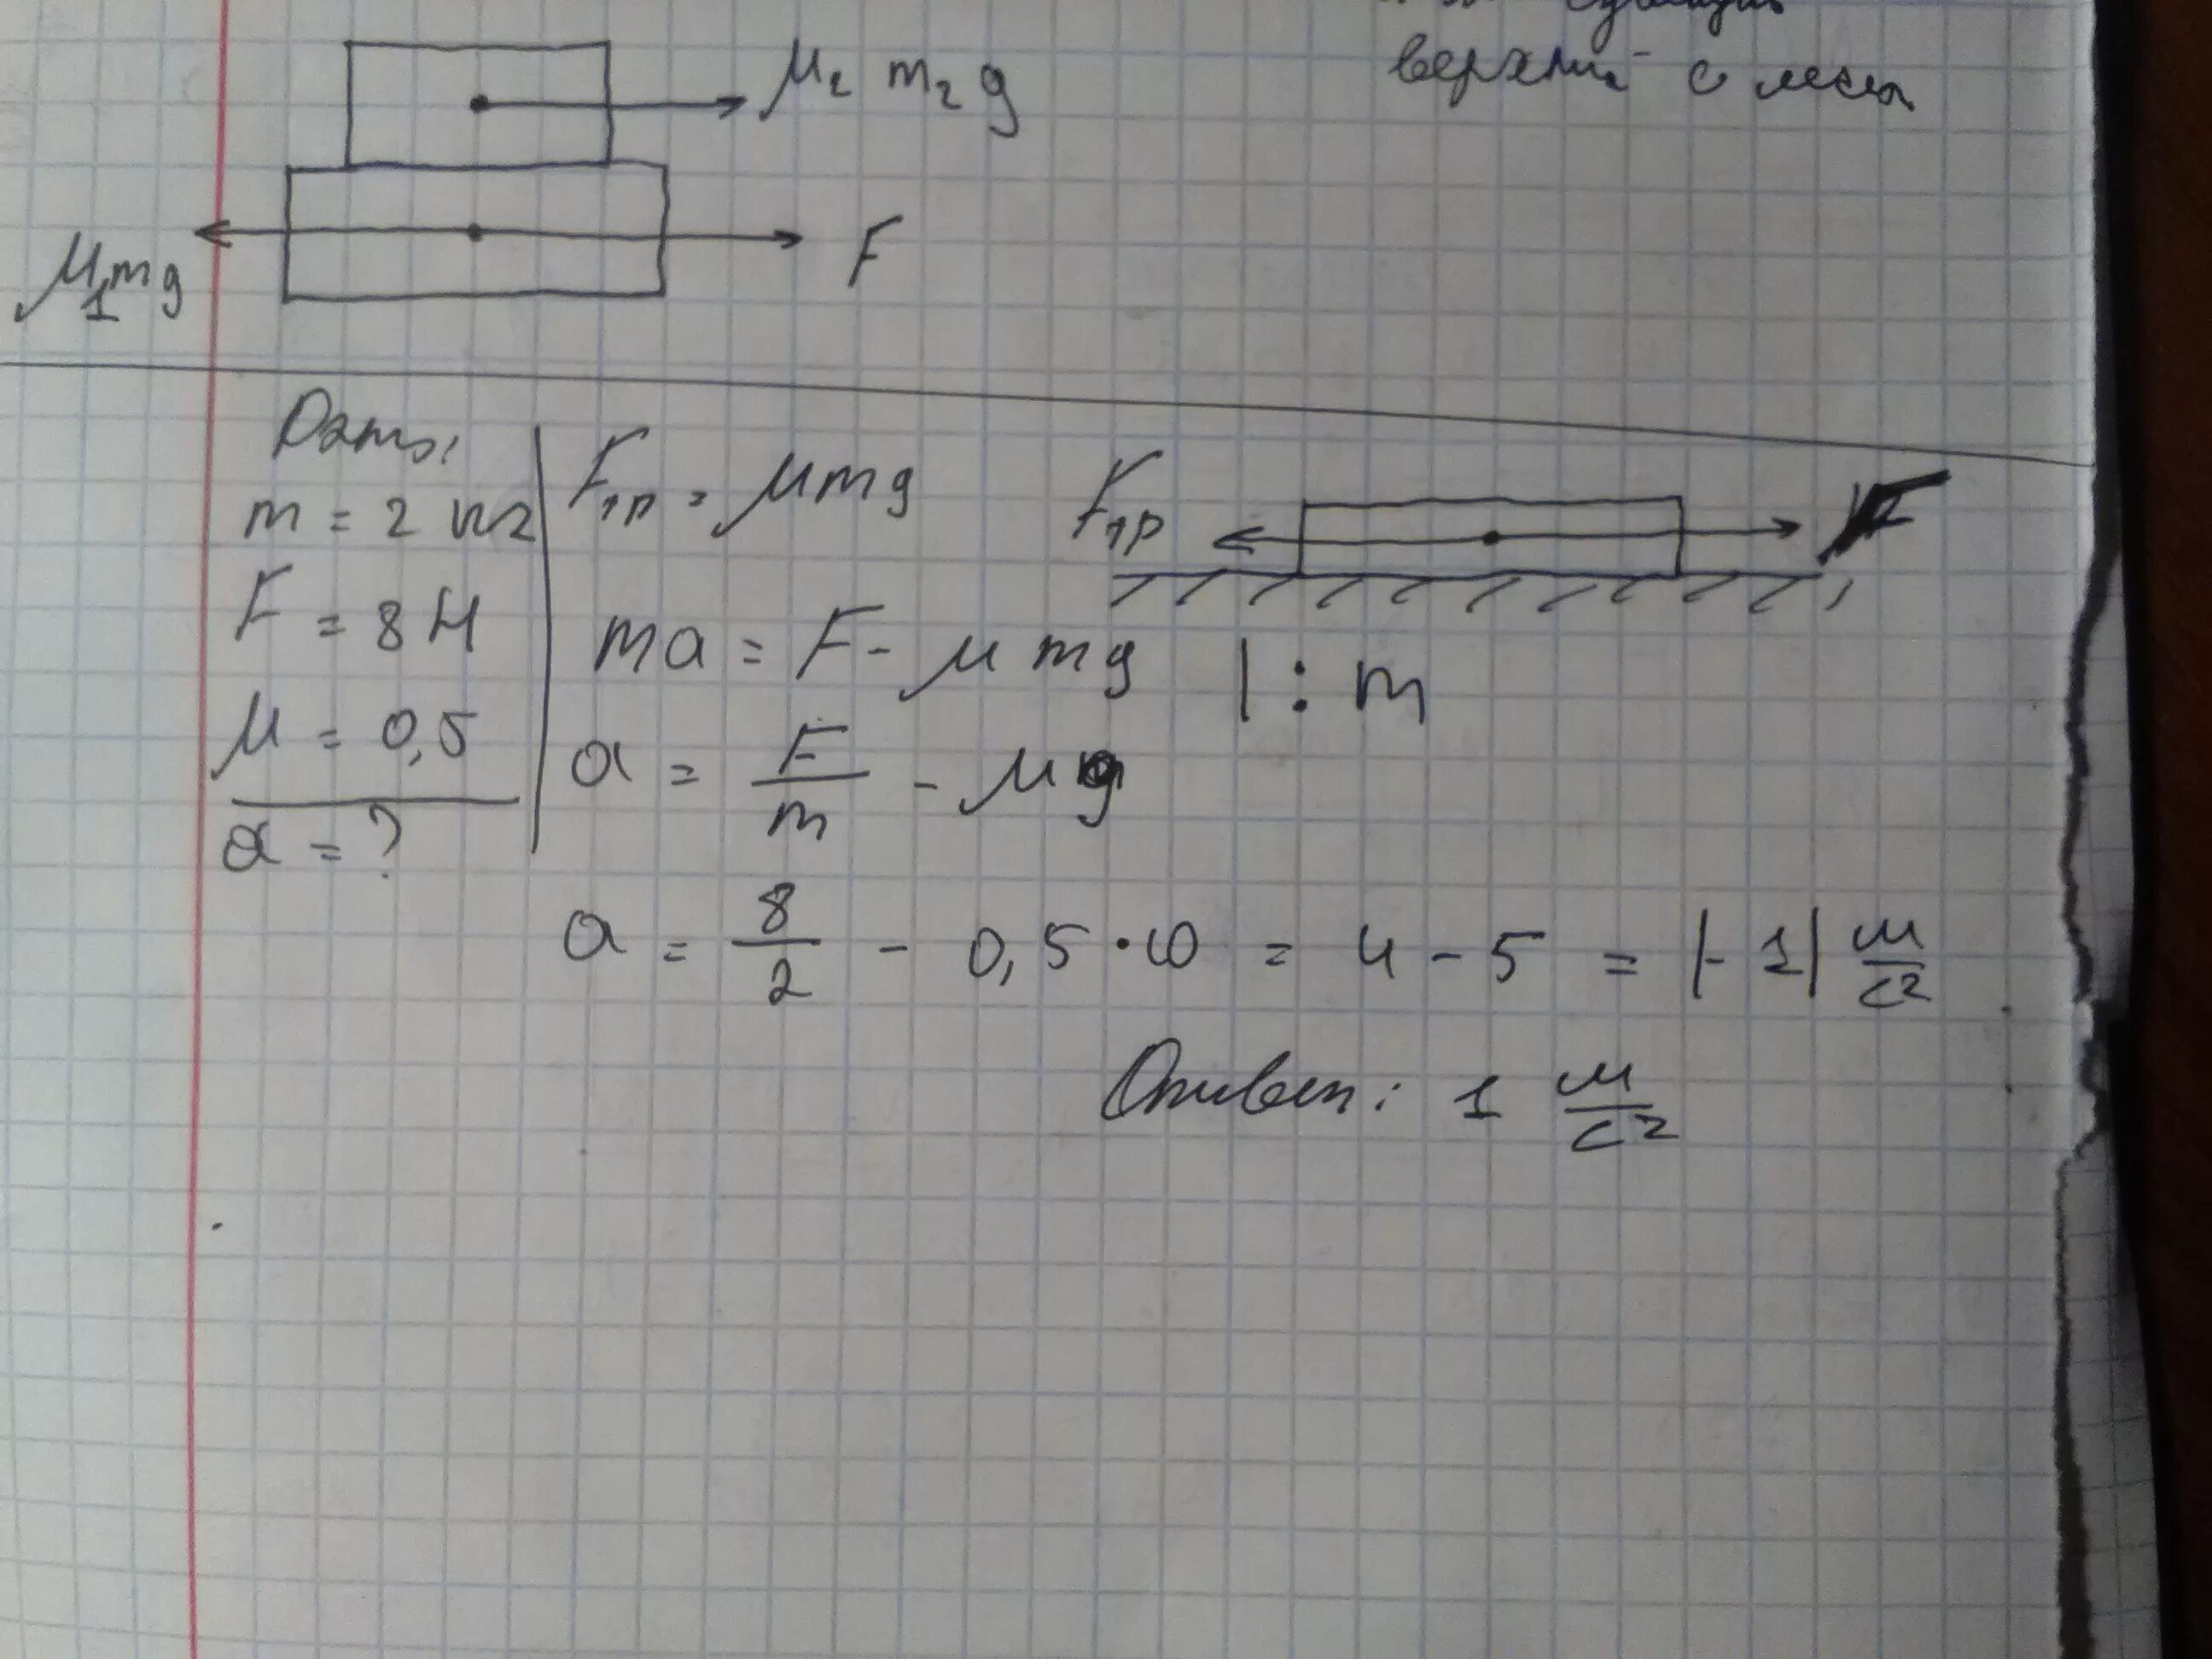 верхний с места
μ₂ m₂ g
μ₁mg
F
Дано:
m = 2 кг
F = 8 Н
μ = 0,5
a = ?
Fтр = μmg
Fтр
F
ma = F - μ mg | : m
a = F/m - μg
a = 8/2 - 0,5 · 10 = 4 - 5 = |-1| м/с²
Ответ: 1 м/с²